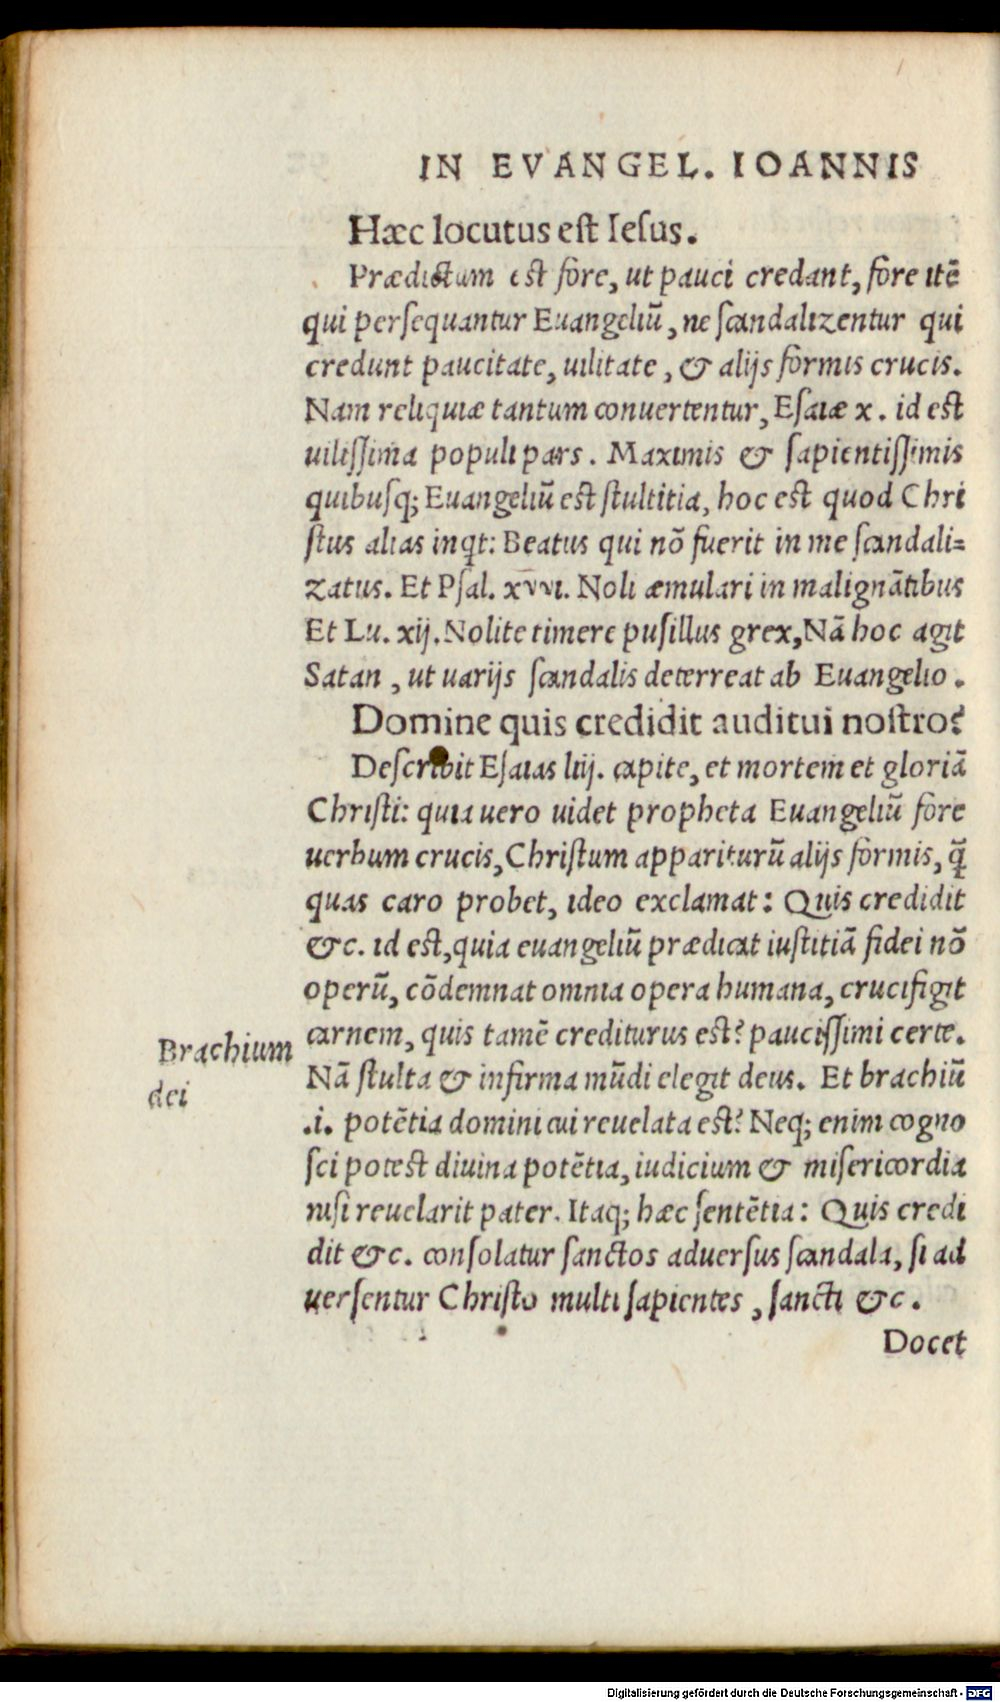 IN EVANGEL. IOANNIS
Hæc locutus est Iesus.
Prædictum est fore, ut pauci credant, fore itē
qui persequantur Euangeliū, ne scandalizentur qui
credunt paucitate, uilitate, & alijs formis crucis.
Nam reliquiæ tantum conuertentur, Esaiæ x. id est
uilissima populi pars. Maximis & sapientissimis
quibusq; Euangeliū est stultitia, hoc est quod Chri
stus alias inqt: Beatus qui nō fuerit in me scandali=
zatus. Et Psal. xvvi. Noli æmulari in malignātibus
Et Lu. xij. Nolite timere pusillus grex, Nā hoc agit
Satan, ut uarijs scandalis deterreat ab Euangelio.
Domine quis credidit auditui nostro?
Describit Esaias liij. capite, et mortem et gloriā
Christi: quia uero uidet propheta Euangeliū fore
uerbum crucis, Christum appariturū alijs formis, q̃
quas caro probet, ideo exclamat: Quis credidit
&c. id est, quia euangeliū prædicat iustitiā fidei nō
operū, cōdemnat omnia opera humana, crucifigit
carnem, quis tamē crediturus est? paucissimi certe.
Brachium
dei
Nā stulta & infirma mūdi elegit deus. Et brachiū
.i. potētia domini cui reuelata est? Neq; enim cogno
sci potest diuina potētia, iudicium & misericordia
nisi reuelarit pater. Itaq; hæc sentētia: Quis credi
dit &c. consolatur sanctos aduersus scandala, si ad
uersentur Christo multi sapientes, sancti &c.
Docet
Digitalisierung gefördert durch die Deutsche Forschungsgemeinschaft - DFG